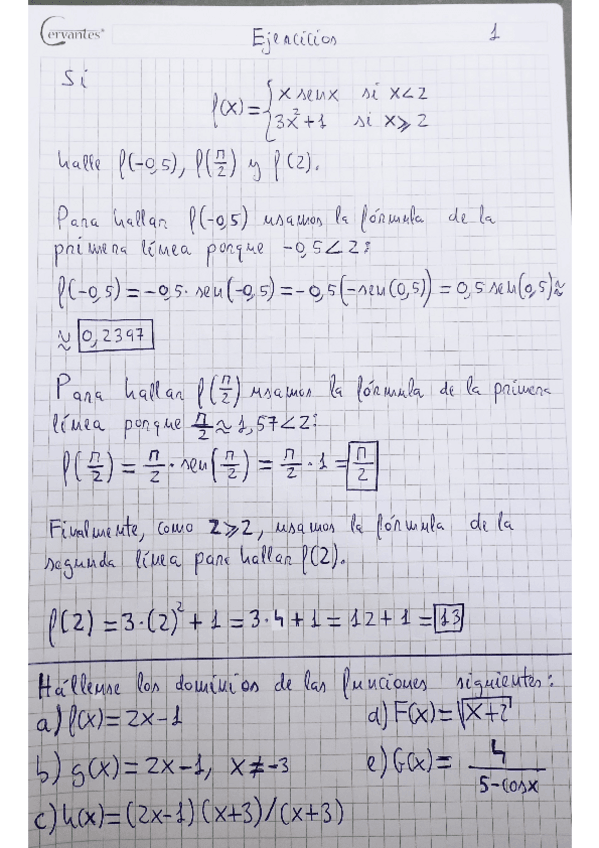 Cervantes®
Ejercicios 1
Si
f(x)= { x senx si x<2
3x²+1 si x⩾2
halle f(-0,5), f(π/2) y f(2).
Para hallar f(-0,5) usamos la fórmula de la
primera línea porque -0,5<2:
f(-0,5)=-0,5·sen(-0,5)=-0,5(-sen(0,5))=0,5 sen(0,5)≈
≈ 0,2397
Para hallar f(π/2) usamos la fórmula de la primera
línea porque π/2≈1,57<2:
f(π/2)=π/2·sen(π/2)=π/2·1=π/2
Finalmente, como 2⩾2, usamos la fórmula de la
segunda línea para hallar f(2).
f(2)=3·(2)²+1=3·4+1=12+1=13
Hállense los dominios de las funciones siguientes:
a) f(x)=2x-1 d) F(x)=√(x+2)
b) g(x)=2x-1, x≠-3 e) G(x)= 4/(5-cosx)
c) h(x)=(2x-1)(x+3)/(x+3)